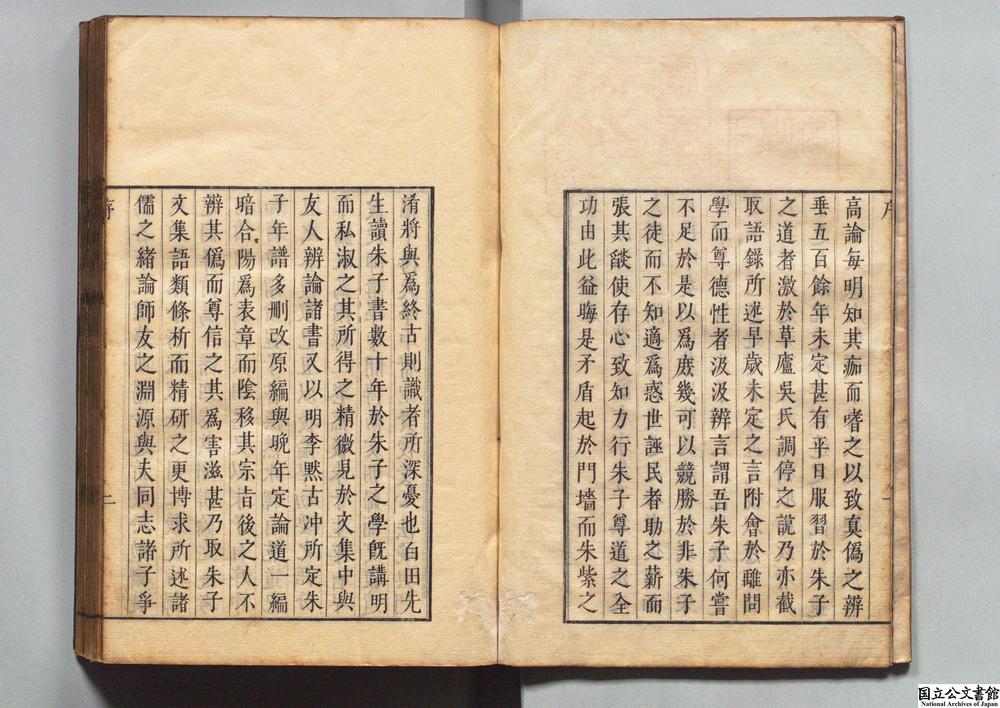 序
高論每明知其痂而嗜之以致真僞之辨
垂五百餘年未定甚有平日服習於朱子
之道者激於草廬吳氏調停之說乃亦截
取語錄所述早歲未定之言附會於離問
學而尊德性者汲汲辨言謂吾朱子何嘗
不足於是以爲庶幾可以競勝於非朱子
之徒而不知適爲惑世誣民者助之薪而
張其燄使存心致知力行朱子尊道之全
功由此益晦是矛盾起於門墻而朱紫之
淆將與爲終古則識者所深憂也白田先
生讀朱子書數十年於朱子之學旣講明
而私淑之其所得之精微見於文集中與
友人辨論諸書又以明李黙古冲所定朱
子年譜多刪改原編與晚年定論道一編
暗合陽爲表章而陰移其宗㫖後之人不
辨其僞而尊信之其爲害滋甚乃取朱子
文集語類條析而精研之更博求所述諸
儒之緒論師友之淵源與夫同志諸子爭
序
二
国立公文書館
National Archives of Japan